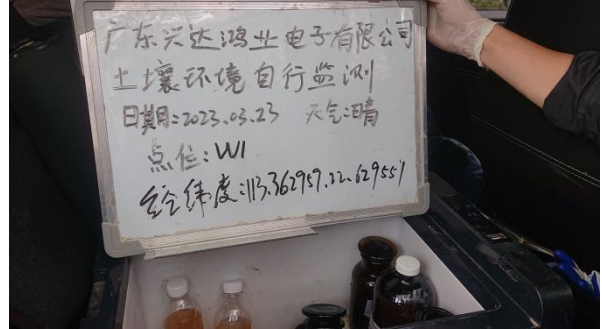 广东兴达鸿业电子有限公司
土壤环境自行监测
日期:2023.03.23 天气:晴
点位:W1
经纬度:113.362959.22.629551